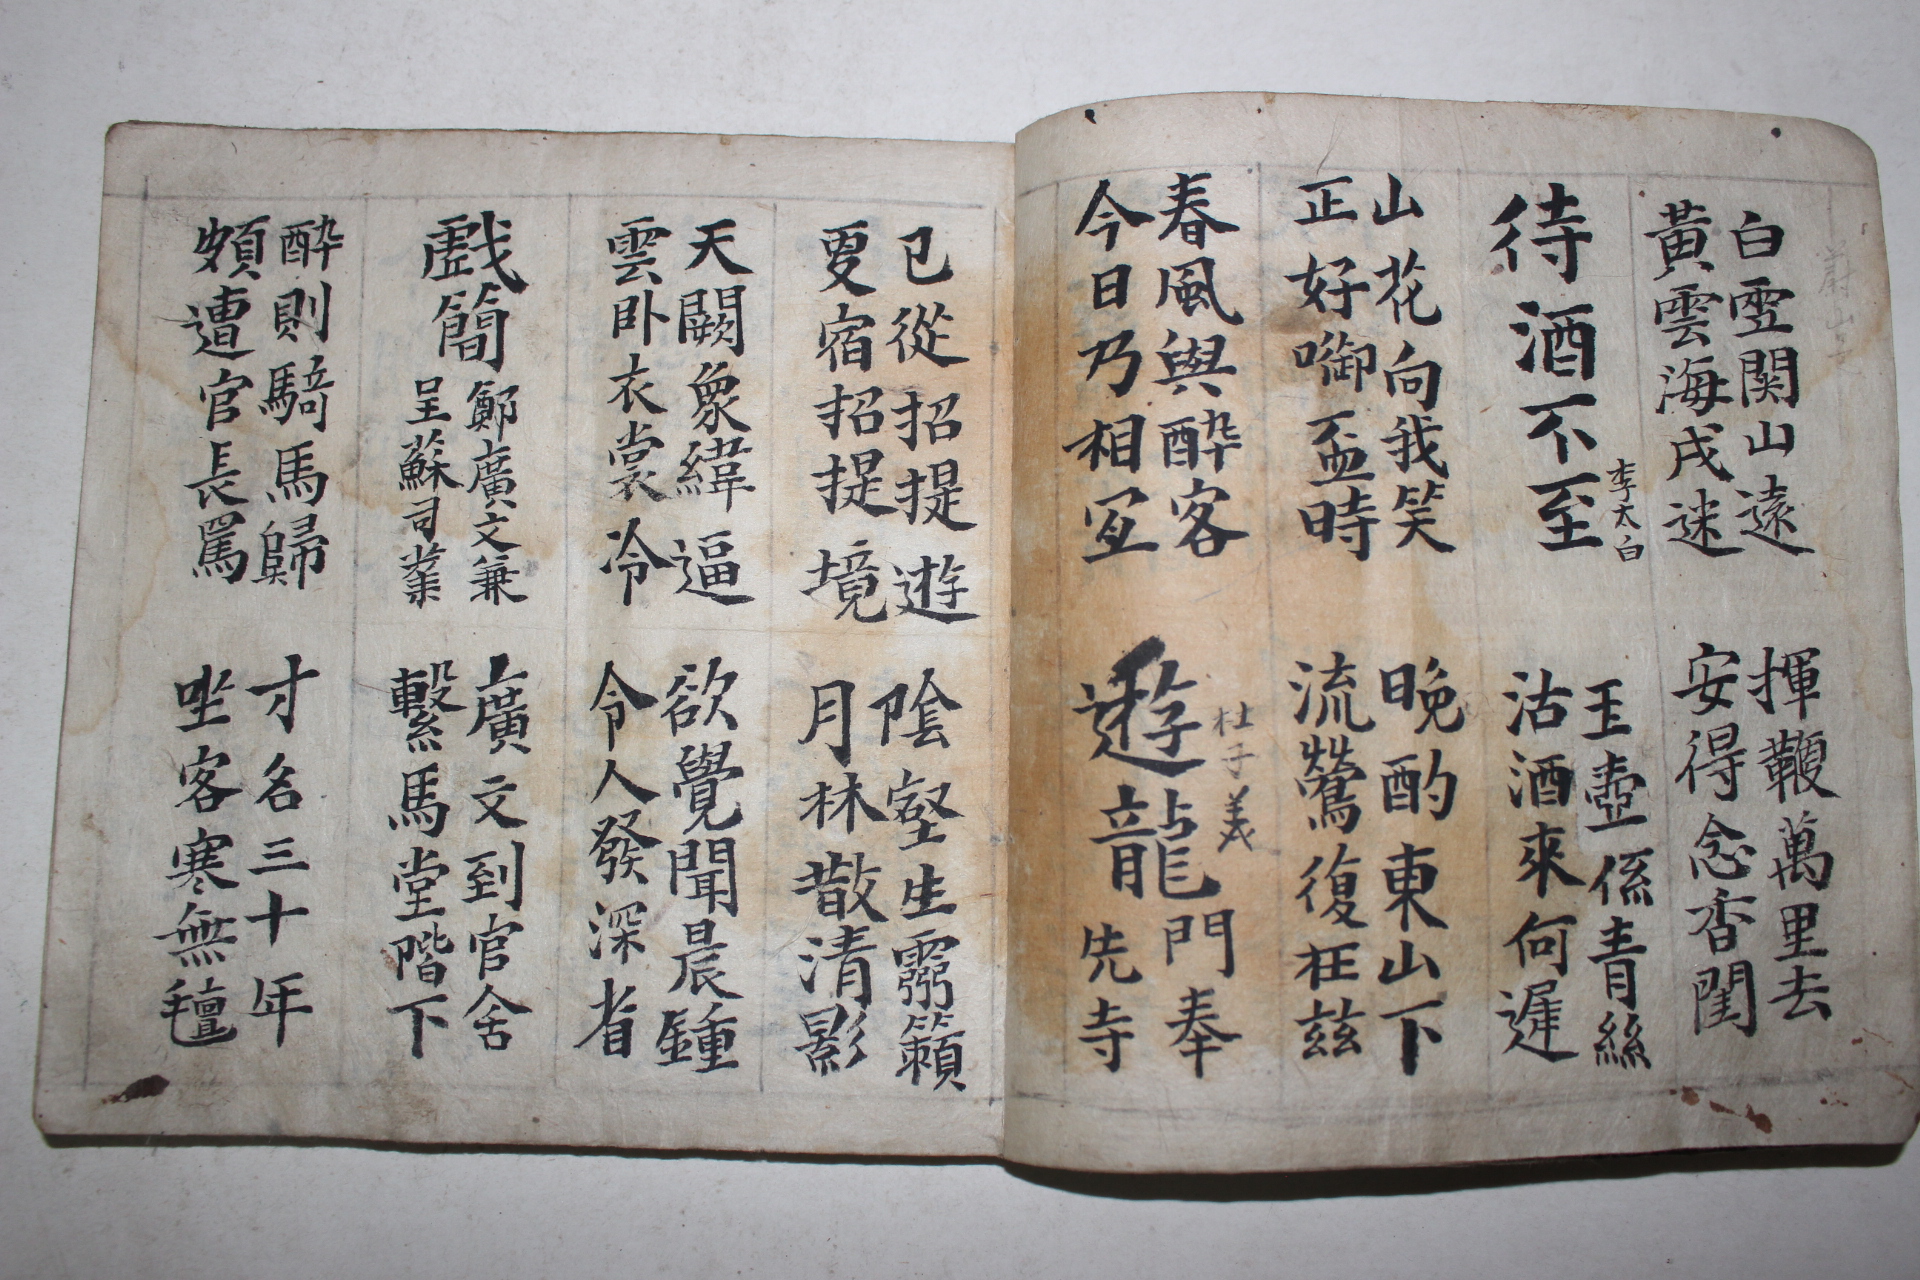 白雪関山遠
黃雲海戍迷
揮鞭萬里去
安得念香閨
待酒不至 李太白
玉壺係青絲
沽酒來何遲
山花向我笑
正好啣盃時
晚酌東山下
流鶯復在茲
春風與醉客
今日乃相宜
遊龍門奉
先寺
杜子美
已從招提遊
更宿招提境
陰壑生靈籟
月林散清影
天闕象緯逼
雲臥衣裳冷
欲覺聞晨鍾
令人發深省
戲簡
鄭廣文兼
呈蘇司業
廣文到官舍
繫馬堂階下
醉則騎馬歸
頗遭官長罵
才名三十年
坐客寒無氈